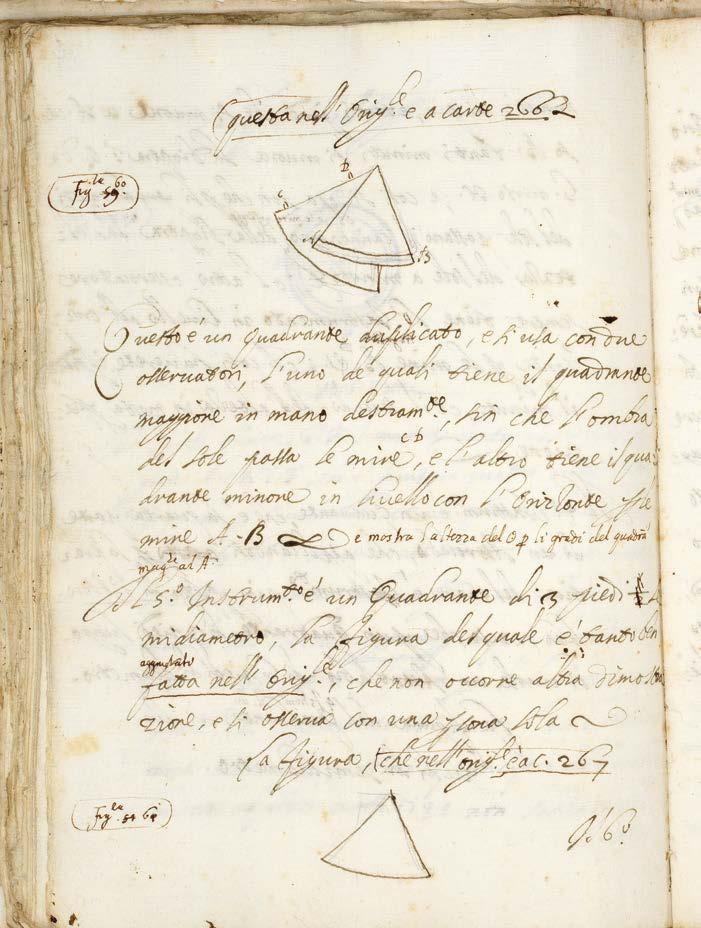 (questa nell' Orig.le e a carte 266.
fig.la 59. 60
D
C
A
B
Questo é un Quadrante duplicato, e si usa con due
osservatori, l'uno de quali tiene il quadrante
maggiore in mano destram.te, sin che l'ombra
del sole passa le mire C D, e l'altro tiene il qua
drante minore in livello con l'Orizonte p le
mire A. B e mostra l'altezza del ☉ p li gradi del quadra
mag.re al A
Il 5.o Instrum.to é un Quadrante di 3 piedi
midiametro, la figura del quale é tanto ben
aggiustato
fatta nell' Orig.le, che non occorre altra dimostra
zione, e si osserva con una persona sola
La figura, (che nell' orig.le é a c. 267
fig.la 61
Il 6.o